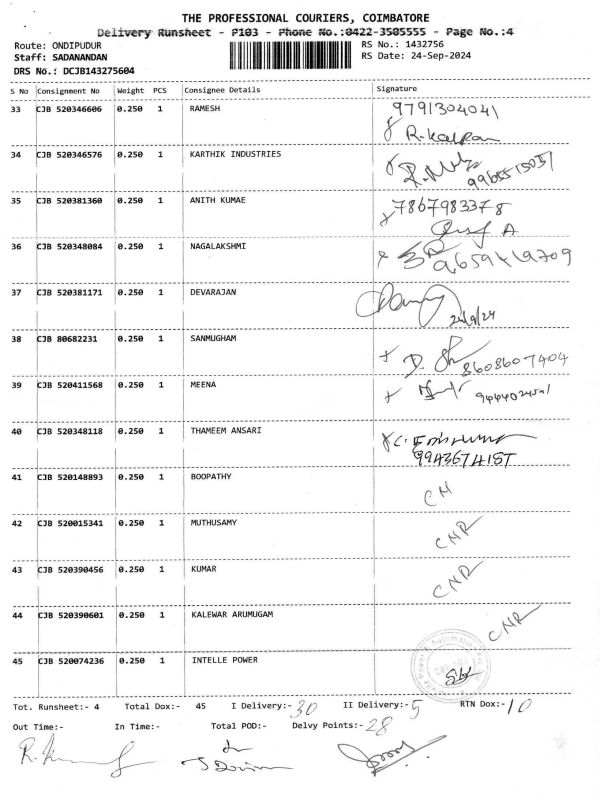 THE PROFESSIONAL COURIERS, COIMBATORE
Delivery Runsheet - P103 - Phone No.:0422-3505555 - Page No.:4
Route: ONDIPUDUR
RS No.: 1432756
Staff: SADANANDAN
RS Date: 24-Sep-2024
DRS No.: DCJB143275604
S No Consignment No Weight PCS Consignee Details Signature
33 CJB 520346606 0.250 1 RAMESH 9791304041
34 CJB 520346576 0.250 1 KARTHIK INDUSTRIES
35 CJB 520381360 0.250 1 ANITH KUMAE 7867983378
36 CJB 520348084 0.250 1 NAGALAKSHMI 9659419709
37 CJB 520381171 0.250 1 DEVARAJAN
24/9/24
38 CJB 80682231 0.250 1 SANMUGHAM
8608607404
39 CJB 520411568 0.250 1 MEENA
40 CJB 520348118 0.250 1 THAMEEM ANSARI
41 CJB 520148893 0.250 1 BOOPATHY
CN
42 CJB 520015341 0.250 1 MUTHUSAMY
CNR
43 CJB 520390456 0.250 1 KUMAR
CNR
44 CJB 520390601 0.250 1 KALEWAR ARUMUGAM
CNR
45 CJB 520074236 0.250 1 INTELLE POWER
Tot. Runsheet:- 4 Total Dox:- 45 I Delivery:- 30 II Delivery:- 5 RTN Dox:- 10
Out Time:- In Time:- Total POD:- Delvy Points:- 28